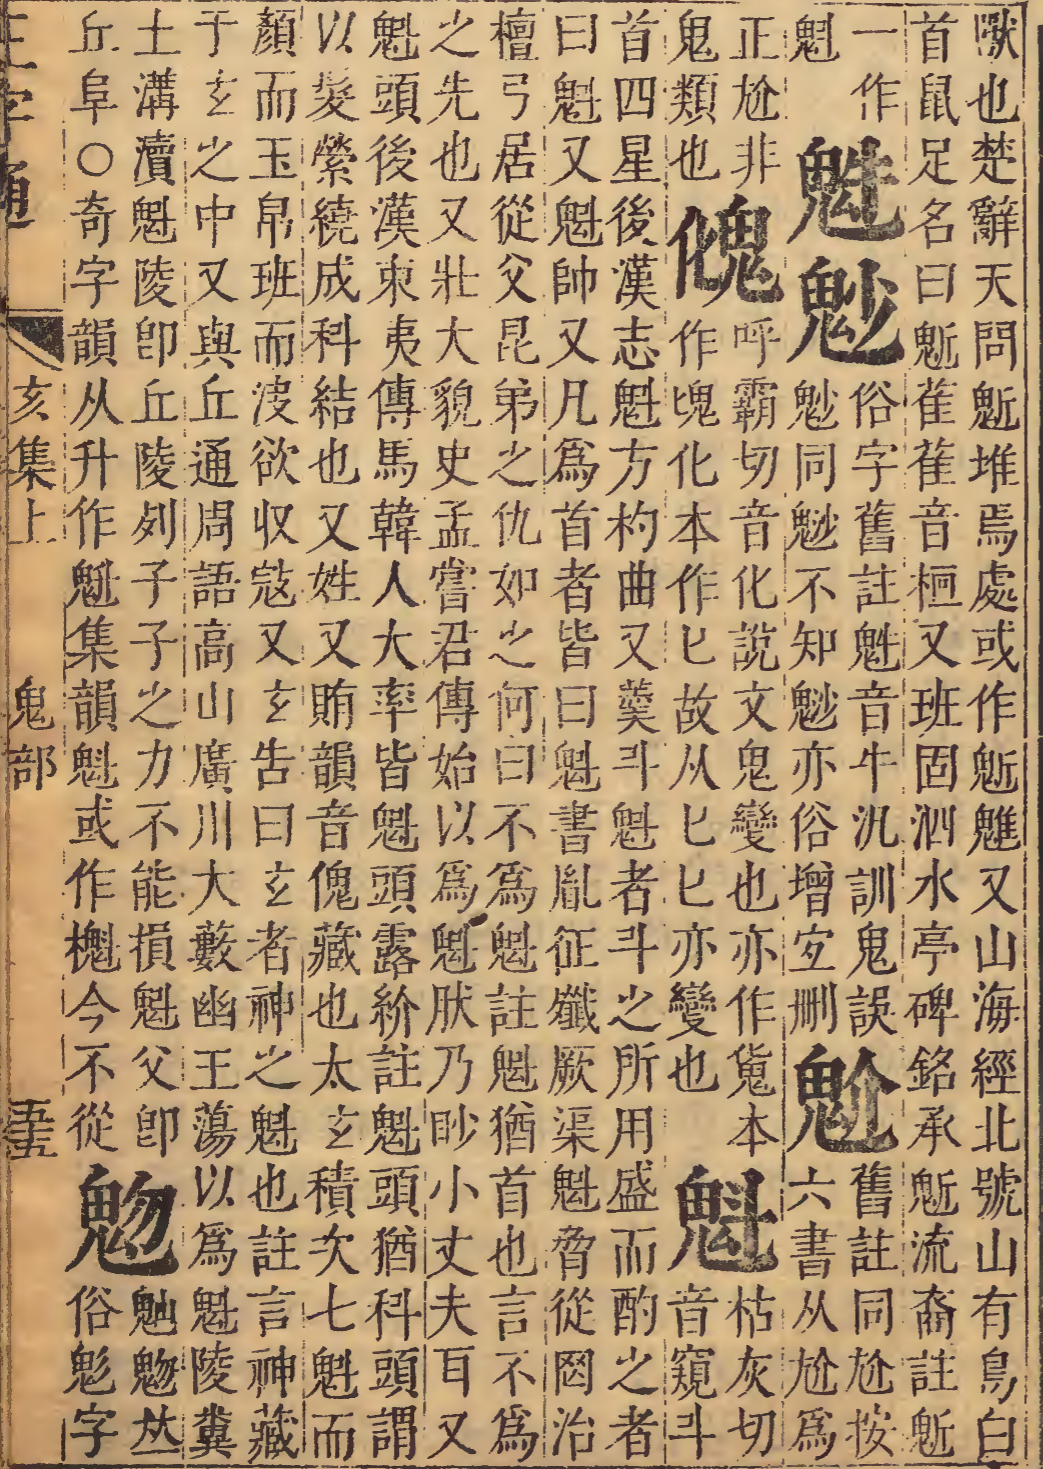 獸也楚辭天問魁堆焉處或作魁䧳又山海經北號山有鳥白
首鼠足名曰魁雀雀音桓又班固泗水亭碑銘承魁流裔註魁
一作魁
𩲃
鬽俗字舊註魁音牛汎訓鬼誤
鬽同鬽不知鬽亦俗增宜删
魀舊註同尬按
六書从尬爲
正尬非
鬼類也
傀呼霸切音化說文鬼變也亦作㒵本
作塊化本作匕故从匕匕亦變也
魁枯灰切
音窺斗
首四星後漢志魁方杓曲又羹斗魁者斗之所用盛而酌之者
曰魁又魁帥又凡爲首者皆曰魁書胤征殲厥渠魁脅從罔治
檀弓居從父昆弟之仇如之何曰不爲魁註魁猶首也言不爲
之先也又壯大貌史孟嘗君傳始以爲魁肰乃眇小丈夫耳又
魁頭後漢東夷傳馬韓人大率皆魁頭露紒註魁頭猶科頭謂
以髮縈繞成科結也又姓又賄韻音傀藏也太玄積次七魁而
顏而玉帛班而決欲收寇又玄告曰玄者神之魁也註言神藏
于玄之中又與丘通周語高山廣川大藪幽王蕩以爲魁陵糞
土溝瀆魁陵卽丘陵列子子之力不能損魁父卽
丘阜○奇字韻从升作魁集韻魁或作櫆今不從
魩
魩𠀤
俗鬽字
正字通
亥集上
鬼部
五五